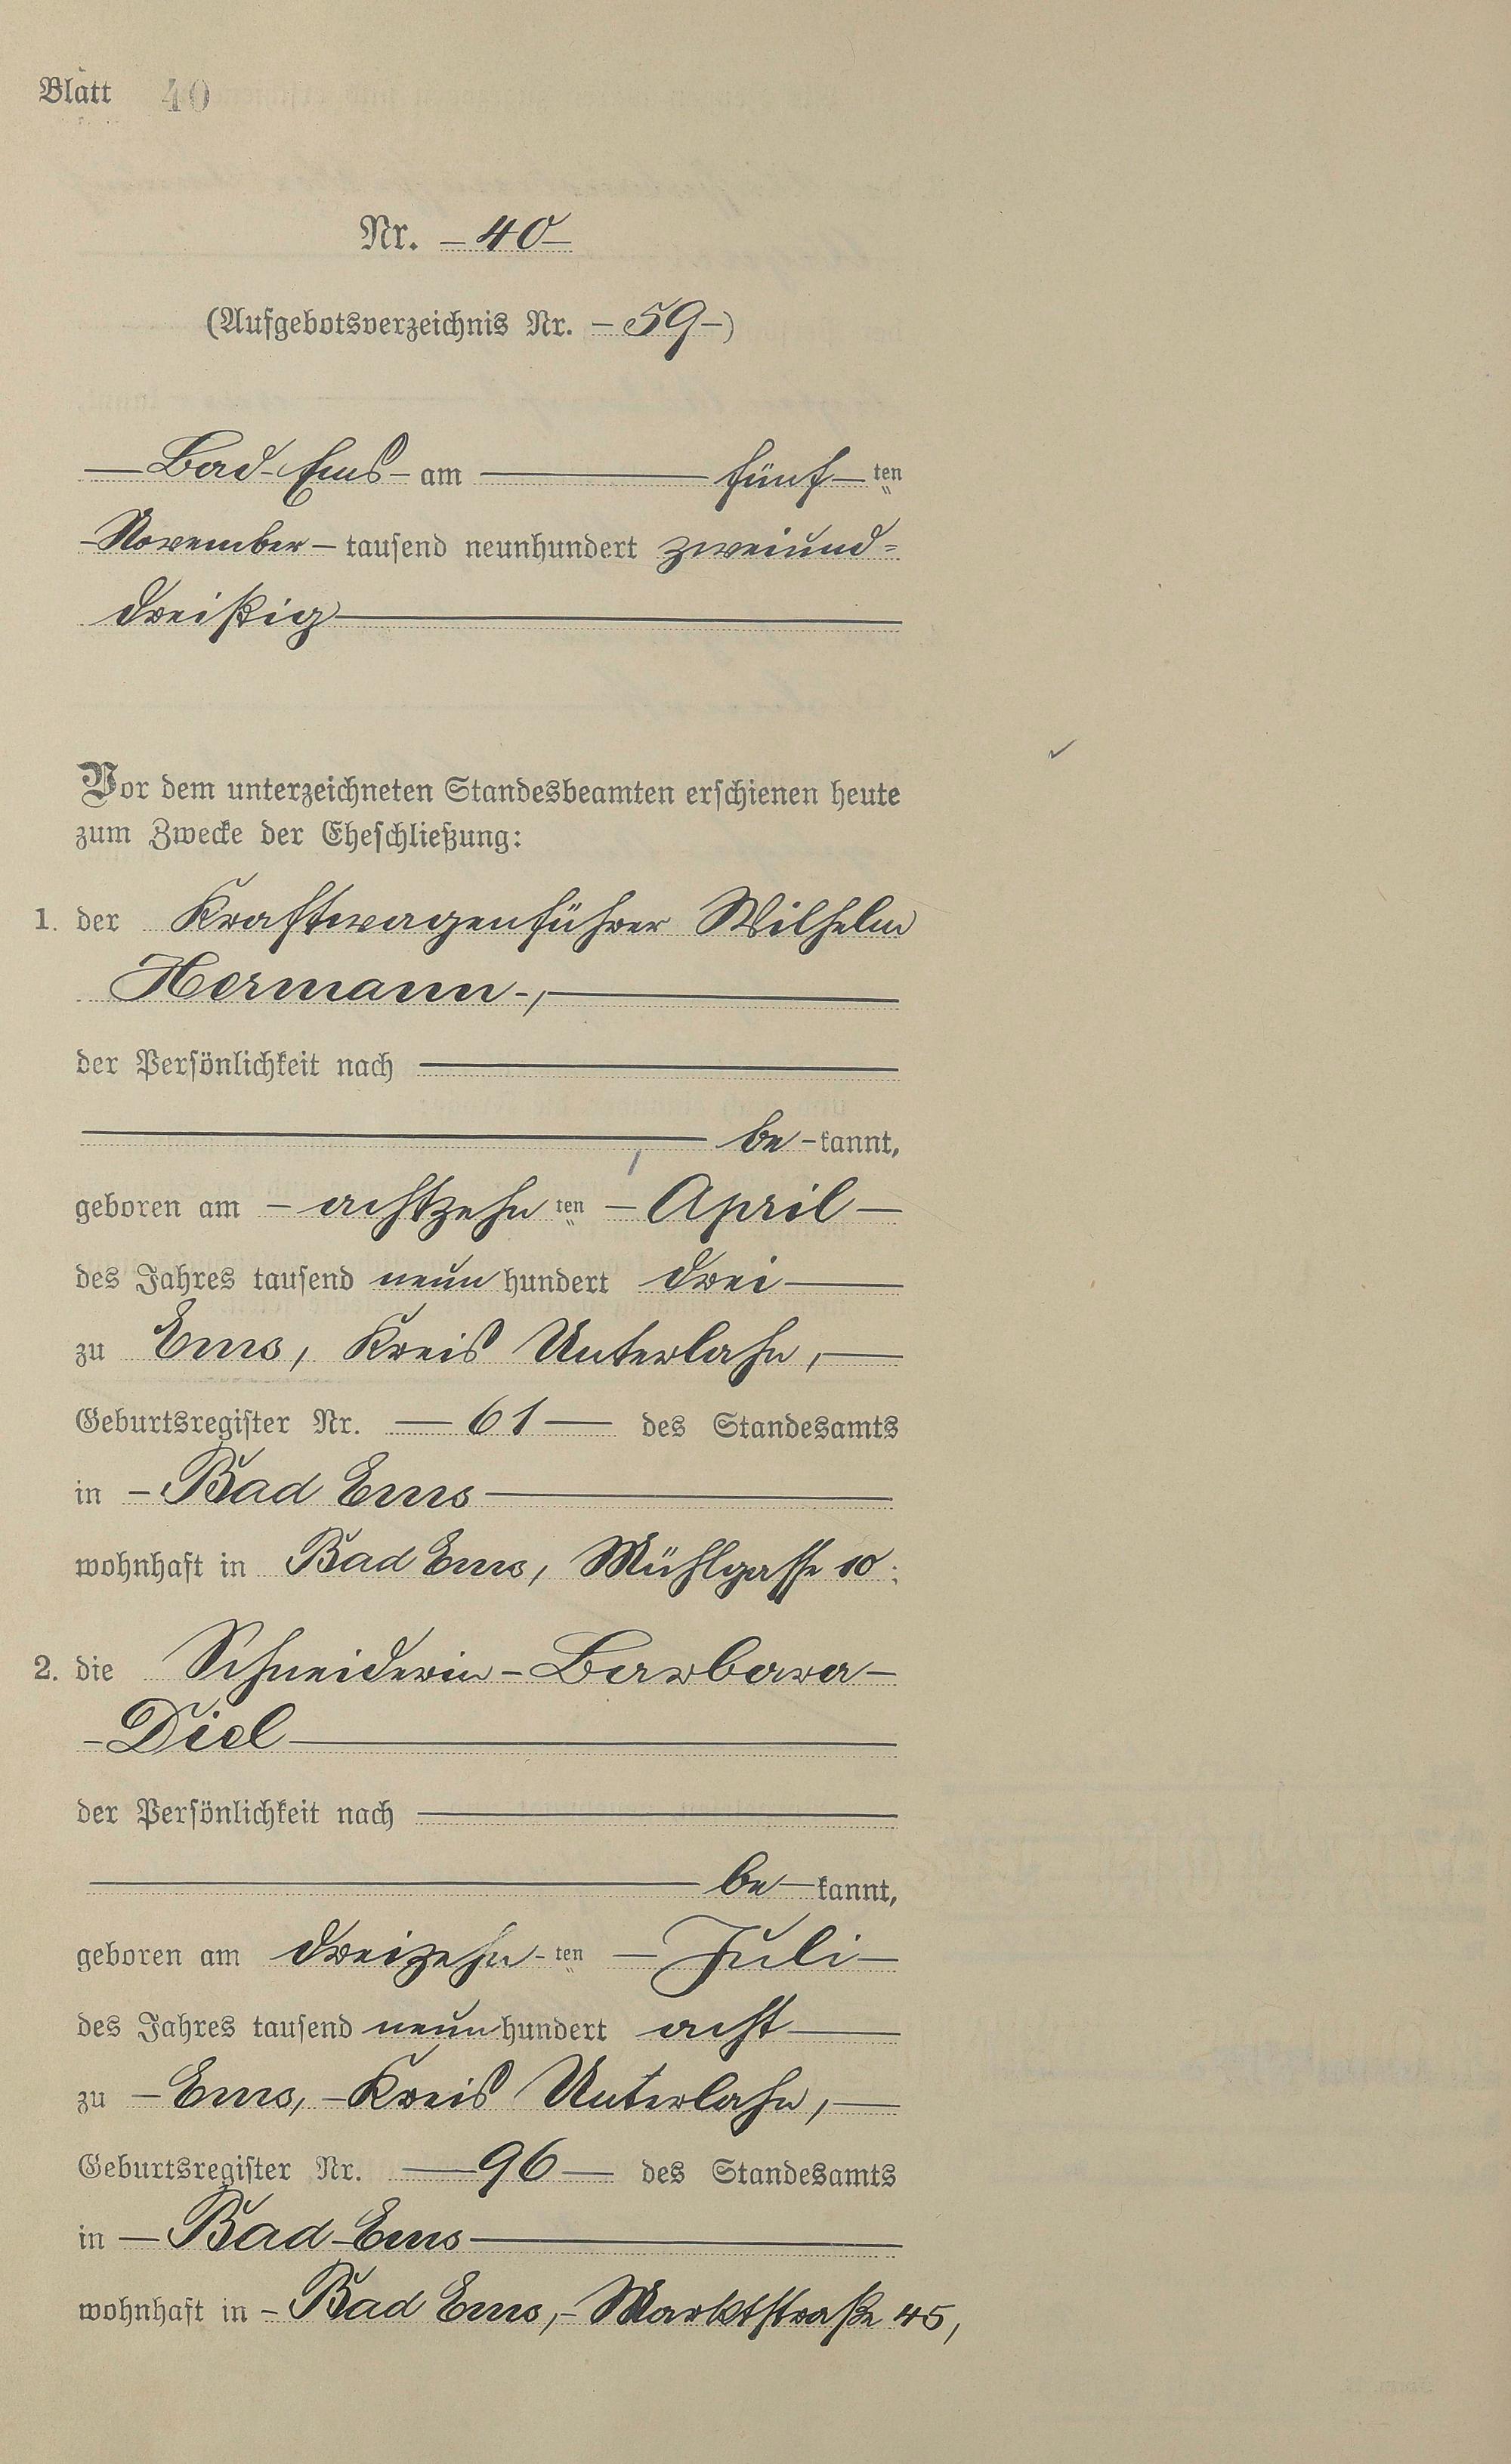 Blatt 40
Nr. – 40 –
(Aufgebotsverzeichnis Nr. – 59 –)
— Bad Ems – am — fünf – ten
– November – tausend neunhundert zweiund=
dreißig —
Vor dem unterzeichneten Standesbeamten erschienen heute
zum Zwecke der Eheschließung:
1. der Kraftwagenführer Wilhelm
Hermann -, —
der Persönlichkeit nach —
— be - kannt,
geboren am – achtzehn ten – April –
des Jahres tausend neun hundert drei —
zu Ems, Kreis Unterlahn, —
Geburtsregister Nr. — 61 — des Standesamts
in – Bad Ems —
wohnhaft in Bad Ems, Mühlgasse 10;
2. die Schneiderin – Barbara –
– Diel —
der Persönlichkeit nach —
— be — kannt,
geboren am dreizehn - ten – Juli –
des Jahres tausend neun hundert acht —
zu – Ems, – Kreis Unterlahn, —
Geburtsregister Nr. — 96 — des Standesamts
in — Bad Ems —
wohnhaft in – Bad Ems, – Marktstraße 45,